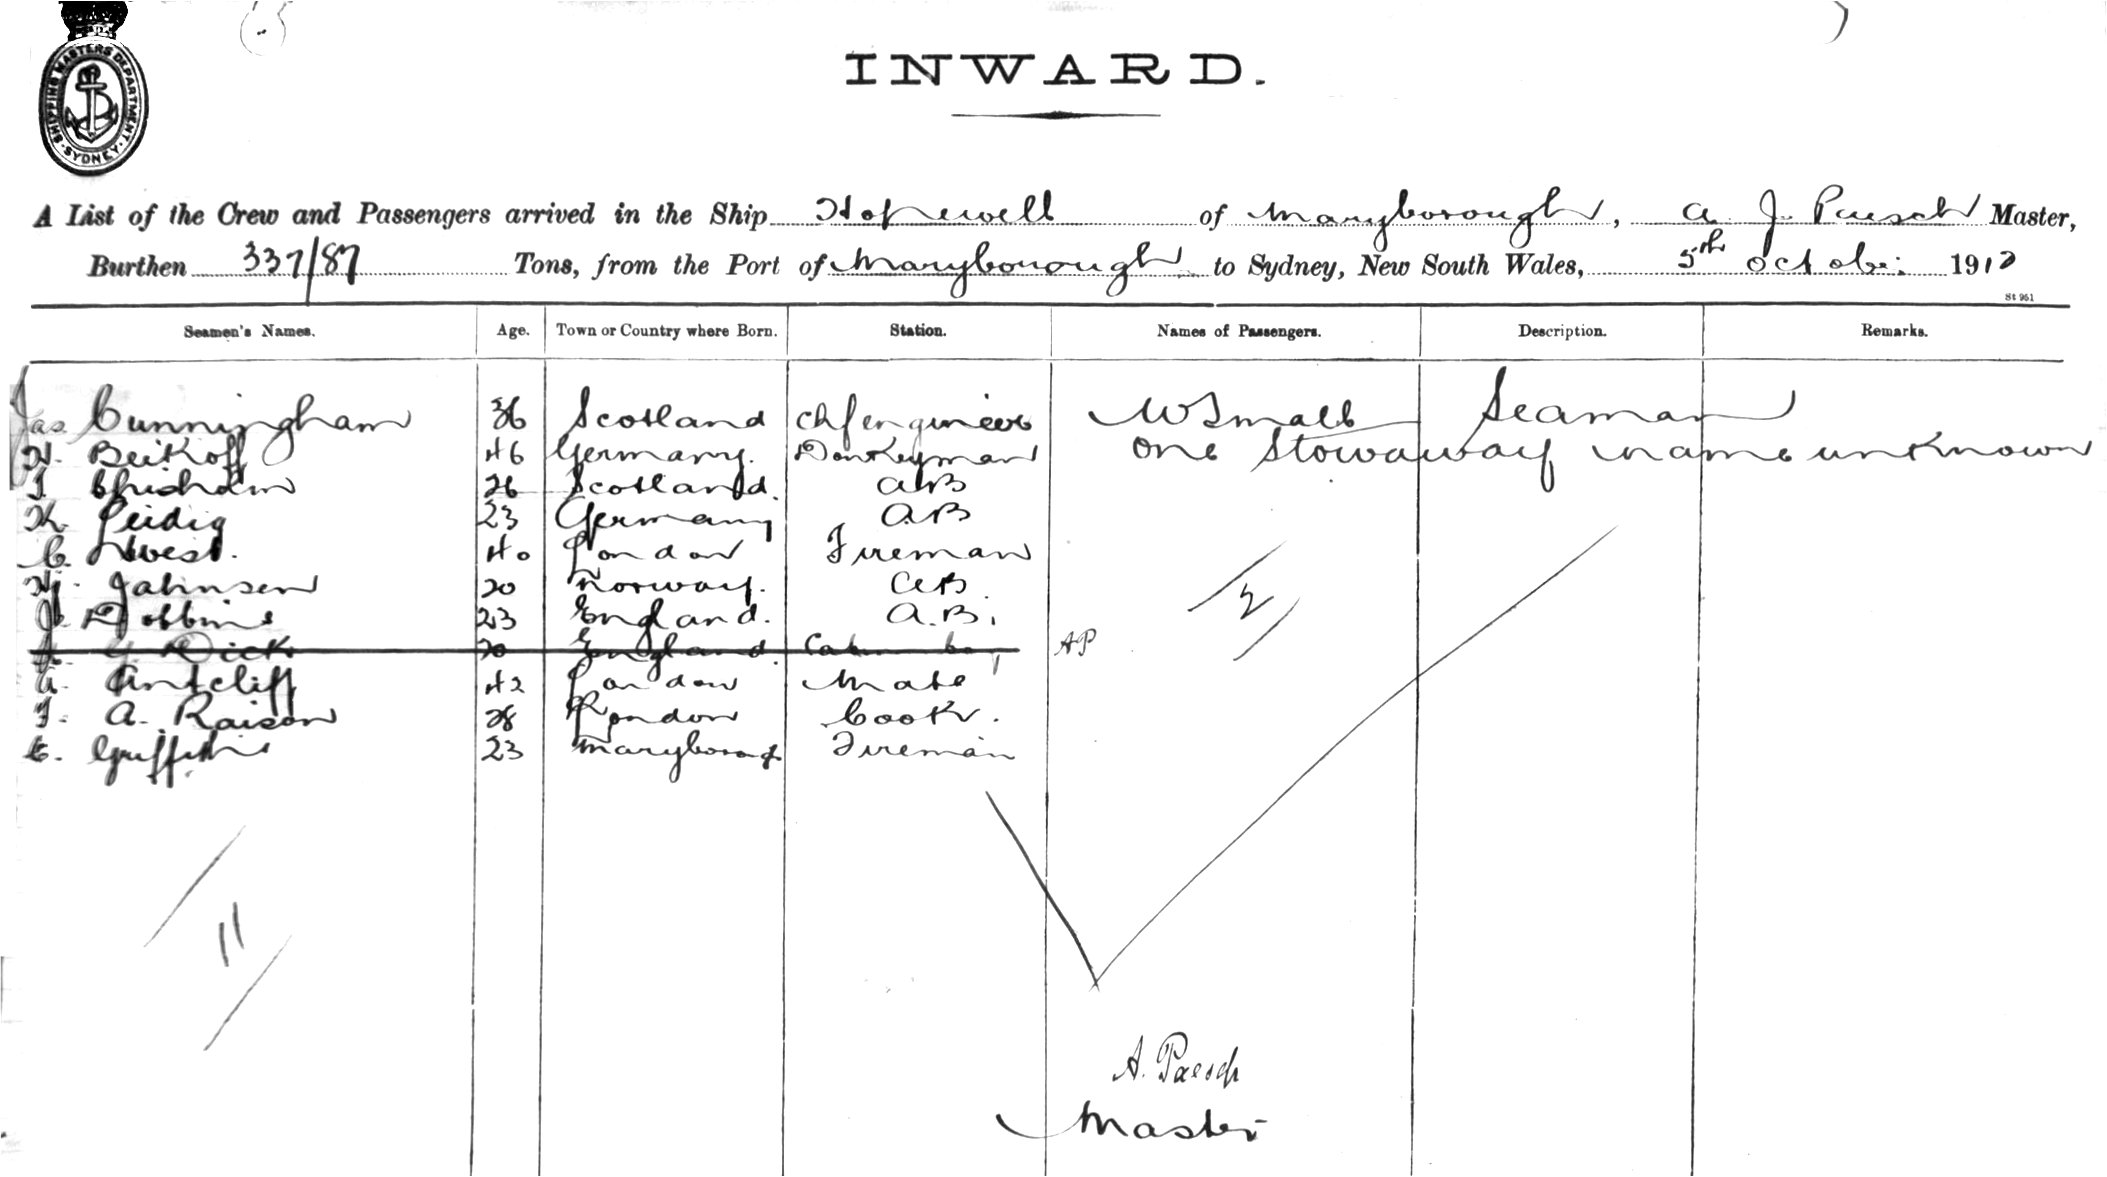 SHIPPING MASTERS DEPARTMENT
SYDNEY
INWARD.
A List of the Crew and Passengers arrived in the Ship Hopewell of Maryborough, A. J. Paesch Master,
Burthen 337/87 Tons, from the Port of Maryborough to Sydney, New South Wales, 5th October 1910
St 961
Seamen's Names. Age. Town or Country where Born. Station. Names of Passengers. Description. Remarks.
Jas Cunningham 36 Scotland Chf engineer W Small Seaman
H. Beikoff 46 Germany. Donkeyman One Stowaway name unknown
J Chisholm 26 Scotland. AB
K. Leidig 23 Germany A.B
C. West. 40 London Fireman
Hj. Jahnsen 20 Norway. AB.
J. Dobbins 23 England. A.B.
Dick 20 England. Cabin boy AP
A. Antcliff 42 London Mate
F. A. Raison 28 London Cook.
E. Griffiths 23 Maryborough Fireman
2
11
A. Paesch
Master